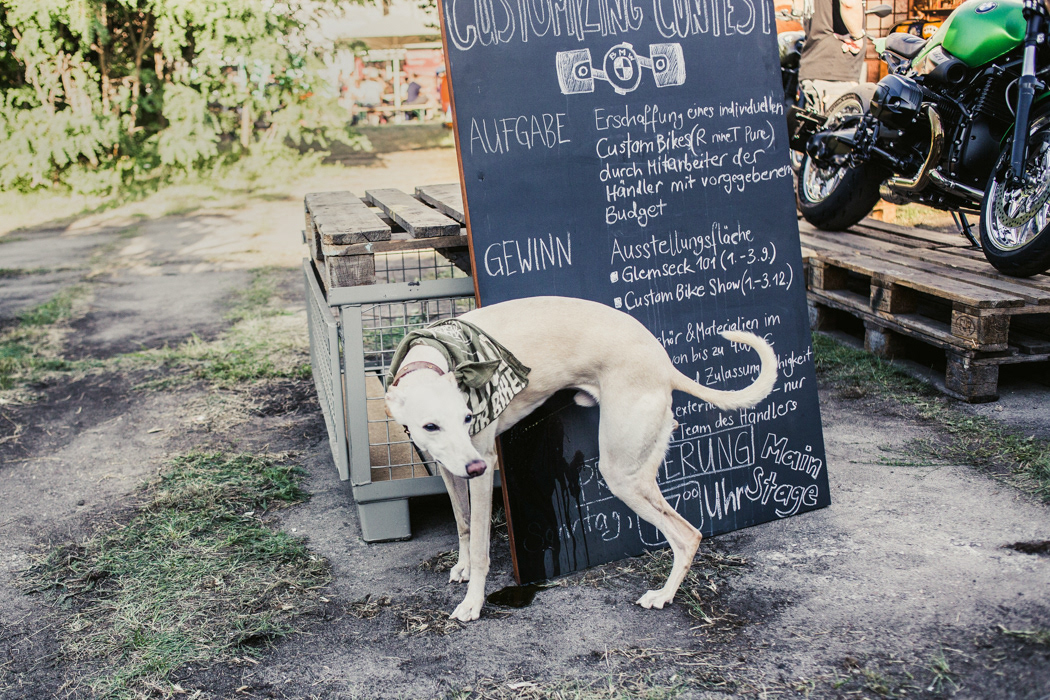 CUSTOMIZING CONTEST
BMW
AUFGABE
Erschaffung eines individuellen
Custom Bikes (R nineT Pure)
durch Mitarbeiter der
Händler mit vorgegebenem
Budget
GEWINN
Ausstellungsfläche
Glemseck 101 (1.-3.9)
Custom Bike Show (1.-3.12)
& Materialien im
von bis zu
und Zulassung
nur
externe
Team des Händlers
Uhr
Main
Stage